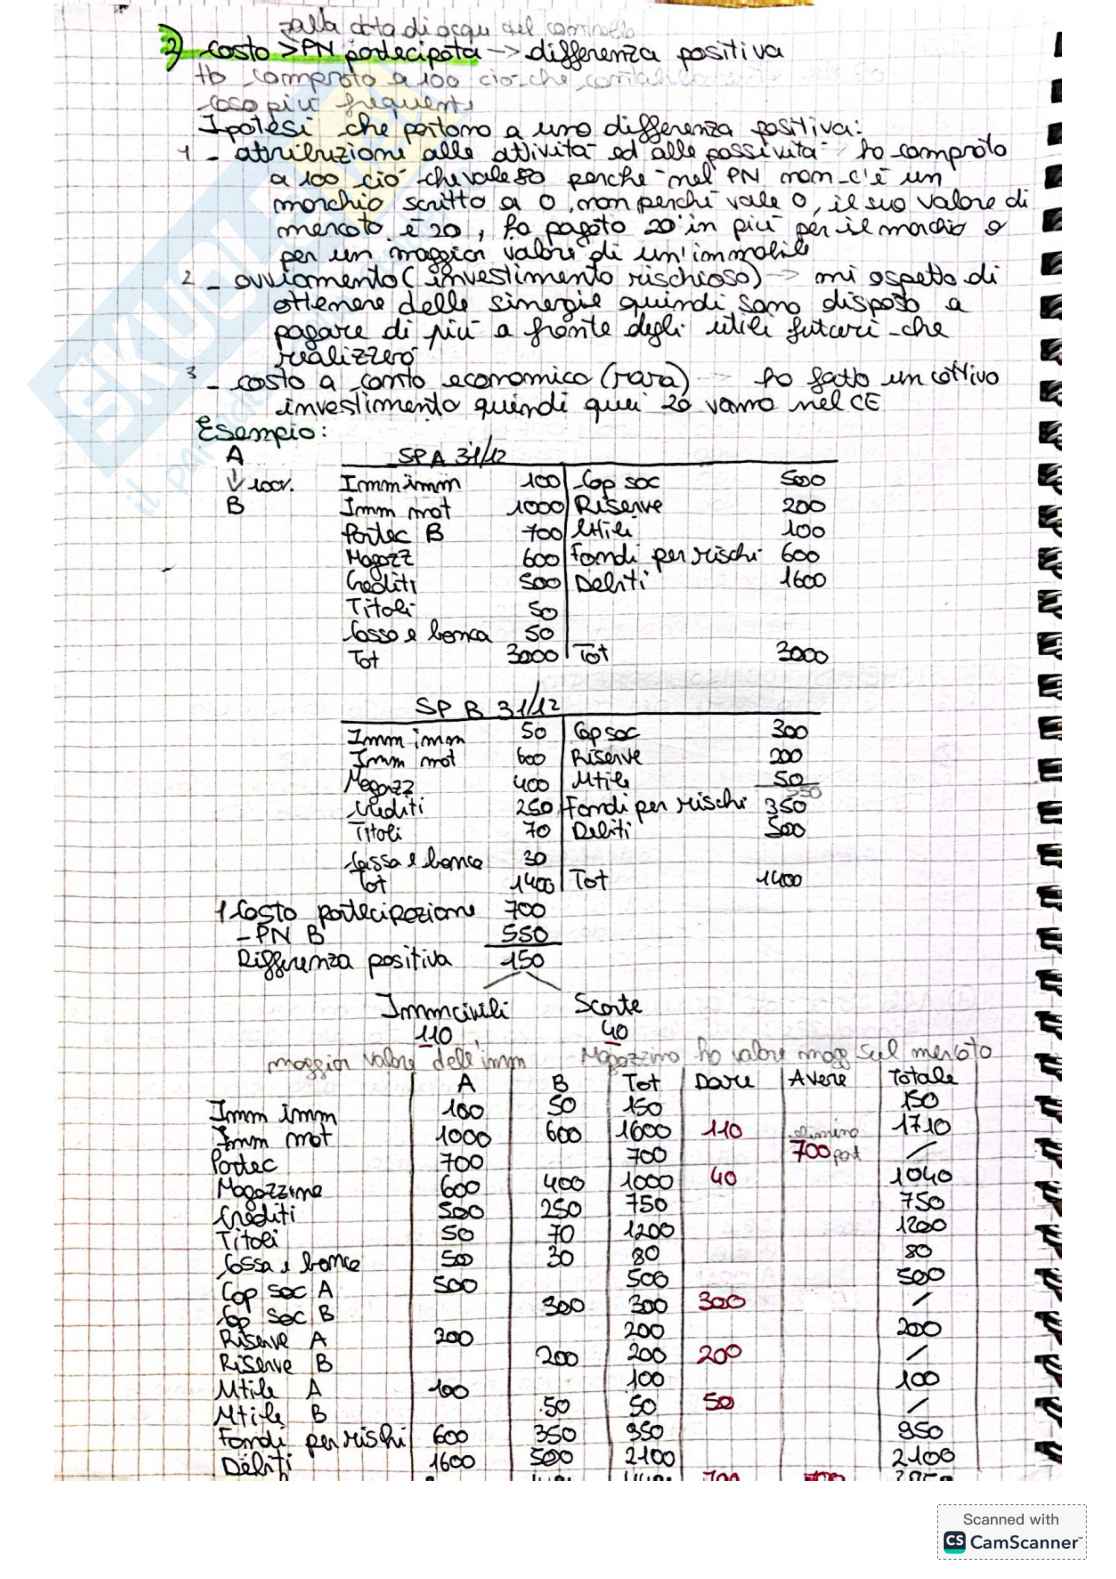 dalla data di acqu del controllo
2) costo > PN partecipata -> differenza positiva
Ho comprato a 100 ciò che
caso più frequente
Ipotesi che portano a una differenza positiva:
1 - attribuzioni alle attività ed alle passività - ho comprato
a 100 ciò che vale 80 perché nel PN non c'è un
marchio scritto a 0, non perché vale 0, il suo valore di
mercato è 20, ho pagato 20 in più per il marchio o
per un maggior valore di un'immobile
2 - avviamento (investimento rischioso) -> mi aspetto di
ottenere delle sinergie quindi sono disposto a
pagare di più a fronte degli utili futuri che
realizzerò
3 - costo a conto economico (rara) -> ho fatto un cattivo
investimento quindi quei 20 vanno nel CE
Esempio:
A
↓ 100%
B
SP A 31/12
Imm imm 100 Cap soc 500
Imm mat 1000 Riserve 200
Partec B 700 Utili 100
Magazz 600 Fondi per rischi 600
Crediti 500 Debiti 1600
Titoli 50
Cassa e banca 50
Tot 3000 Tot 3000
SP B 31/12
Imm imm 50 Cap soc 300
Imm mat 600 Riserve 200
Magazz 400 Utili 50
550
Crediti 250 Fondi per rischi 350
Titoli 70 Debiti 500
Cassa e banca 30
Tot 1400 Tot 1400
1 Costo partecipazione 700
- PN B 550
Differenza positiva 150
Imm civili Scorte
110 40
maggior valore dell'imm Magazzino ho valore magg sul mercato
A B Tot Dare Avere Totale
Imm imm 100 50 150 150
Imm mat 1000 600 1600 110 1710
Partec 700 700 elimino 700 part /
Magazzino 600 400 1000 40 1040
Crediti 500 250 750 750
Titoli 50 70 1200 1200
Cassa e banca 50 30 80 80
Cap soc A 500 500 500
Cap soc B 300 300 300 /
Riserve A 200 200 200
Riserve B 200 200 200 /
Utile A 100 100 100
Utile B 50 50 50 /
Fondi per rischi 600 350 950 950
Debiti 1600 500 2100 2100
Scanned with
CS CamScanner